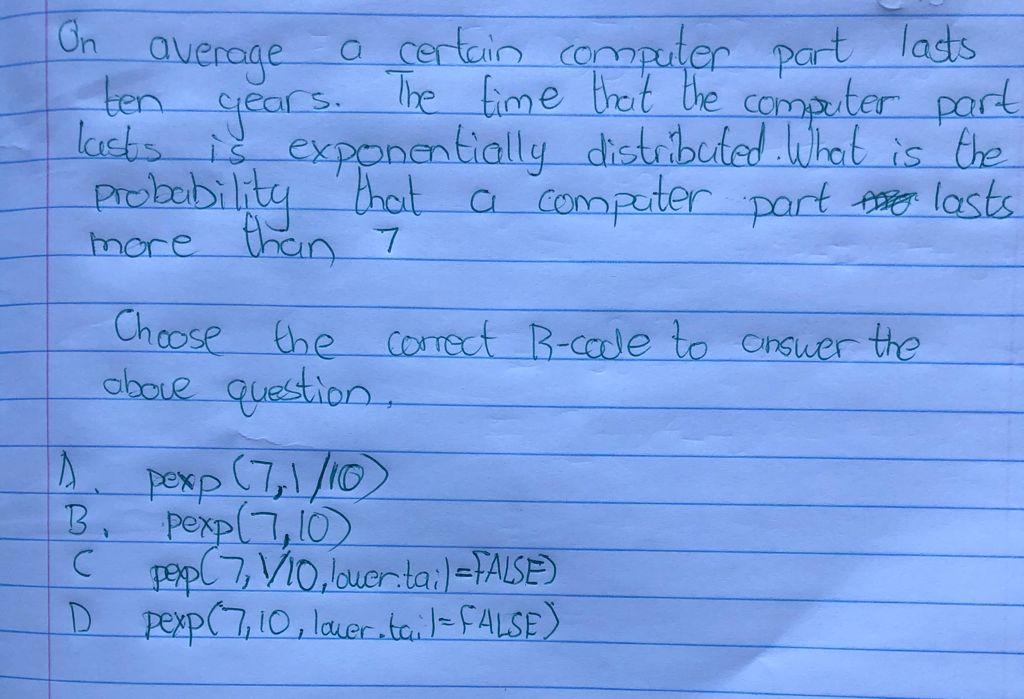 On average a certain computer part lasts
ten years. The time that the computer part
lasts is exponentially distributed. What is the
probability that a computer part lasts
more than 7
Choose the correct R-code to answer the
above question,
A. pexp (7,1/10)
B. pexp(7,10)
C pexp(7,1/10,lower.tail=FALSE)
D pexp(7,10,lower.tail=FALSE)